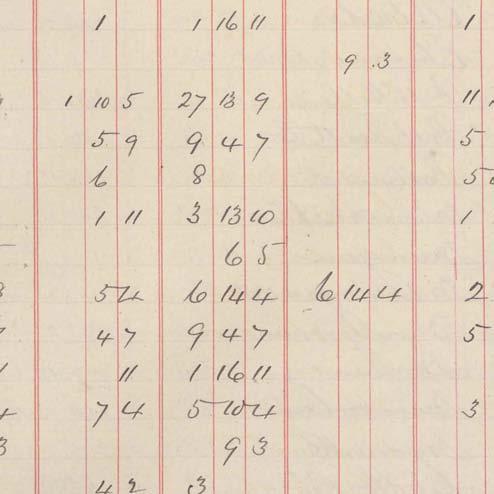 1 1 16 11 1
9 .3
1 10 5 27 13 9 11
5 9 9 4 7 5
6 8 5
1 11 3 13 10 1
6 5
5 4 6 14 4 6 14 4 2
4 7 9 4 7 5
11 1 16 11
7 4 5 10 4 3
3 9 3
4 2 3